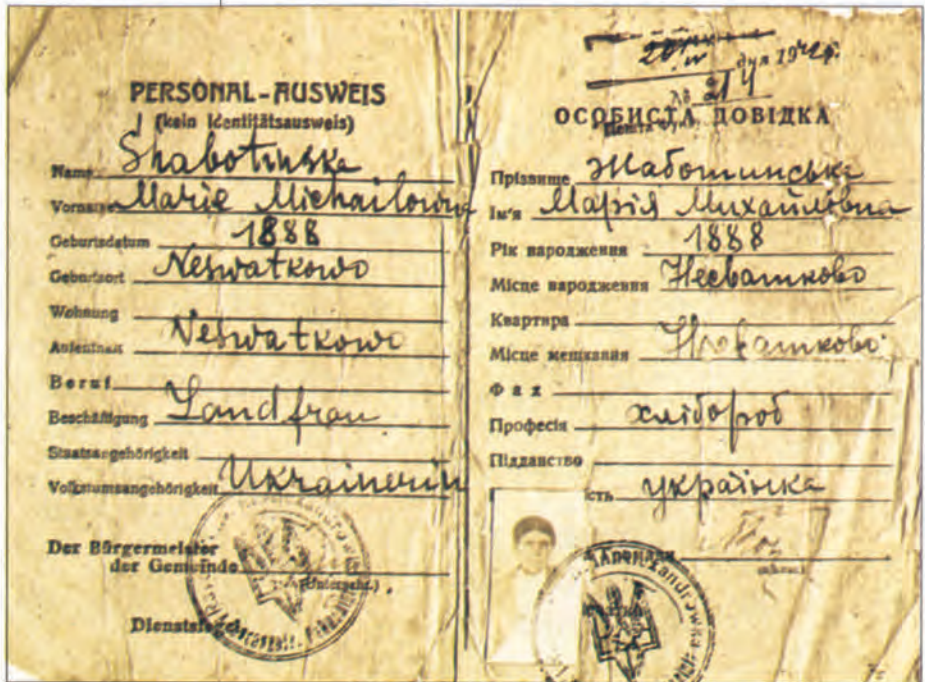 PERSONAL-AUSWEIS
(kein Identitätsausweis)
Name Shabotinska
Vorname Marie Michailowna
Geburtsdatum 1888
Geburtsort Neswatkowo
Wohnung
Aufenthalt Neswatkowo
Beruf
Beschäftigung Landfrau
Staatsangehörigkeit
Volkstumsangehörigkeit Ukrainerin
Der Bürgermeister
der Gemeinde
(Unterschr.)
Dienstsiegel
дня 1942 р.
№ 214
ОСОБИСТА ДОВІДКА
Прізвище Жаботинська
Ім'я Марія Михайловна
Рік народження 1888
Місце народження Несватково
Квартира
Місце мешкання Несватково
Фах
Професія хлібороб
Підданство
сть українка